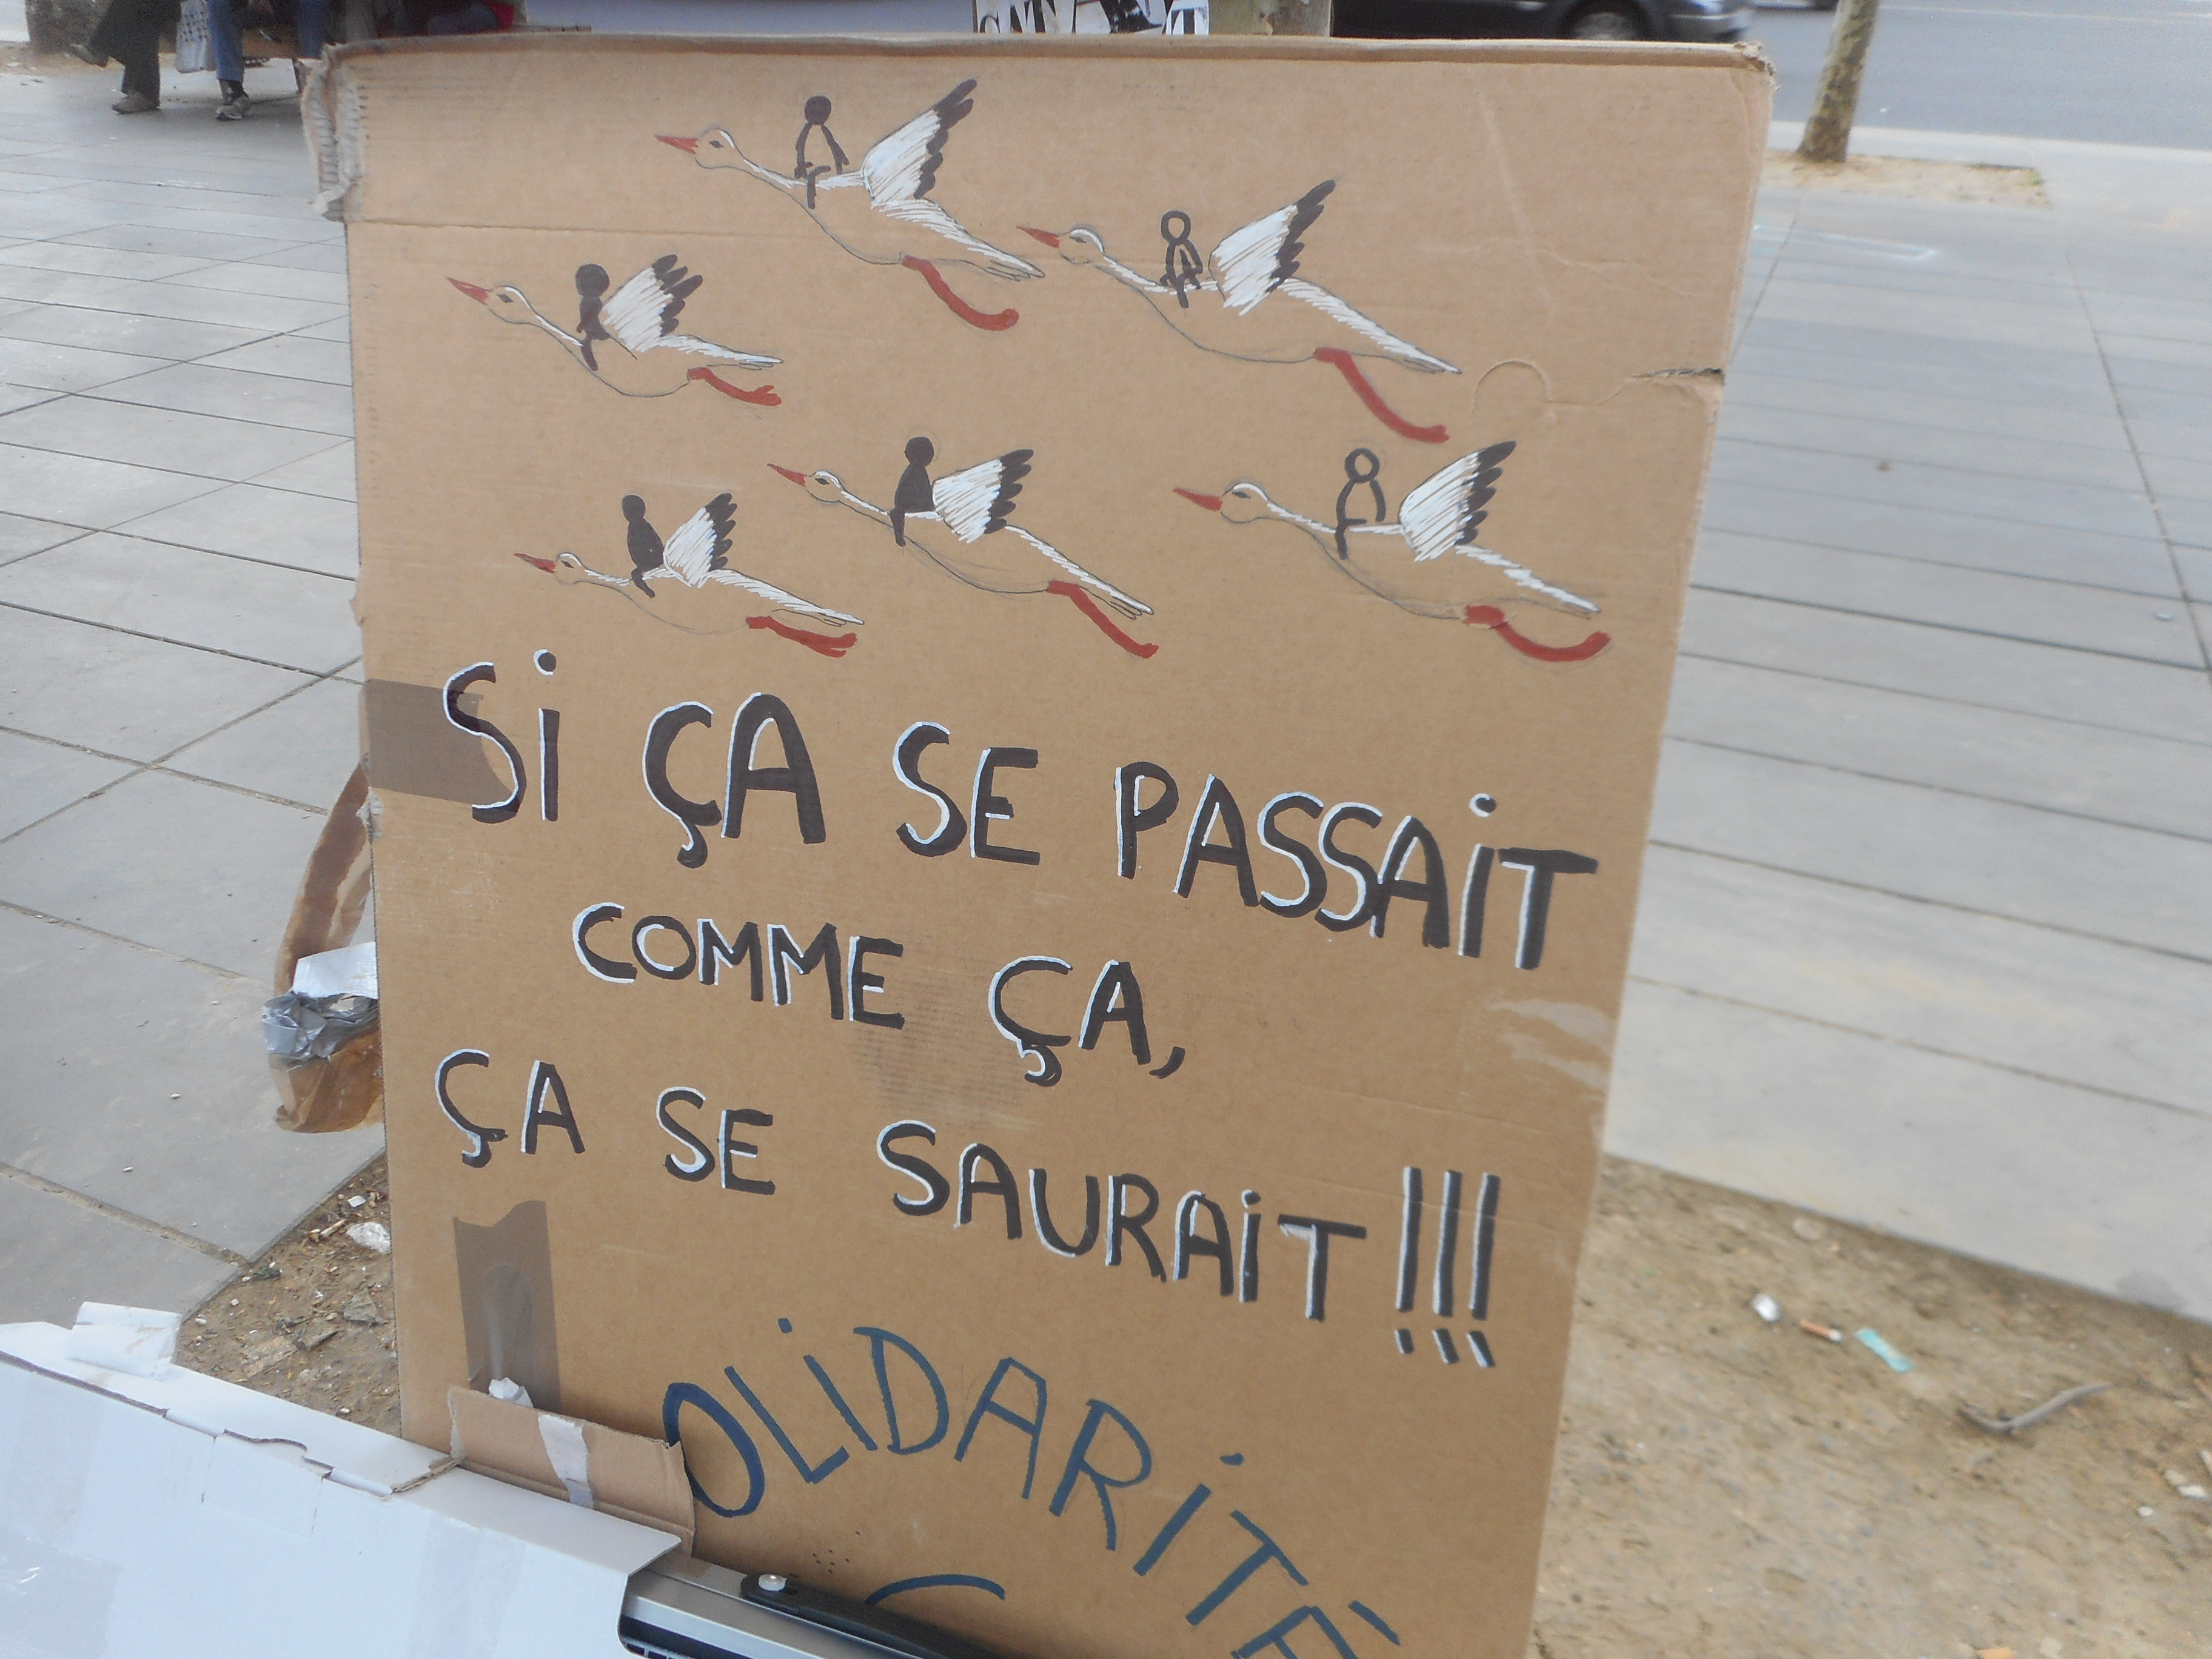 Si ÇA SE PASSAiT
COMME ÇA,
ÇA SE SAURAiT !!!
OLiDARiTÉ